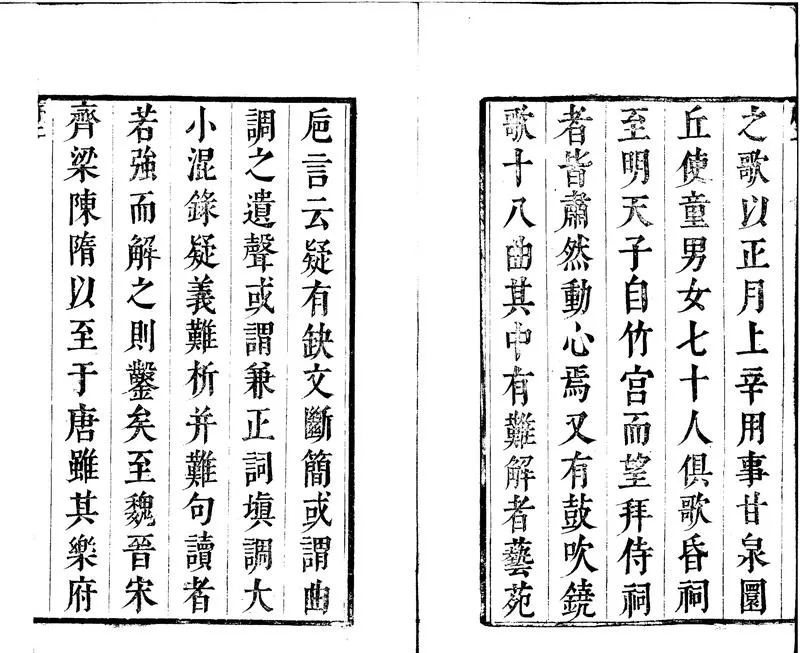 之歌以正月上辛用事甘泉圜
丘使童男女七十人俱歌昏祠
至明天子自竹宮而望拜侍祠
者皆肅然動心焉又有鼓吹鐃
歌十八曲其中有難解者藝苑
巵言云疑有缺文斷簡或謂曲
調之遺聲或謂兼正詞填調大
小混錄疑義難析并難句讀者
若強而解之則鑿矣至魏晉宋
齊梁陳隋以至于唐雖其樂府